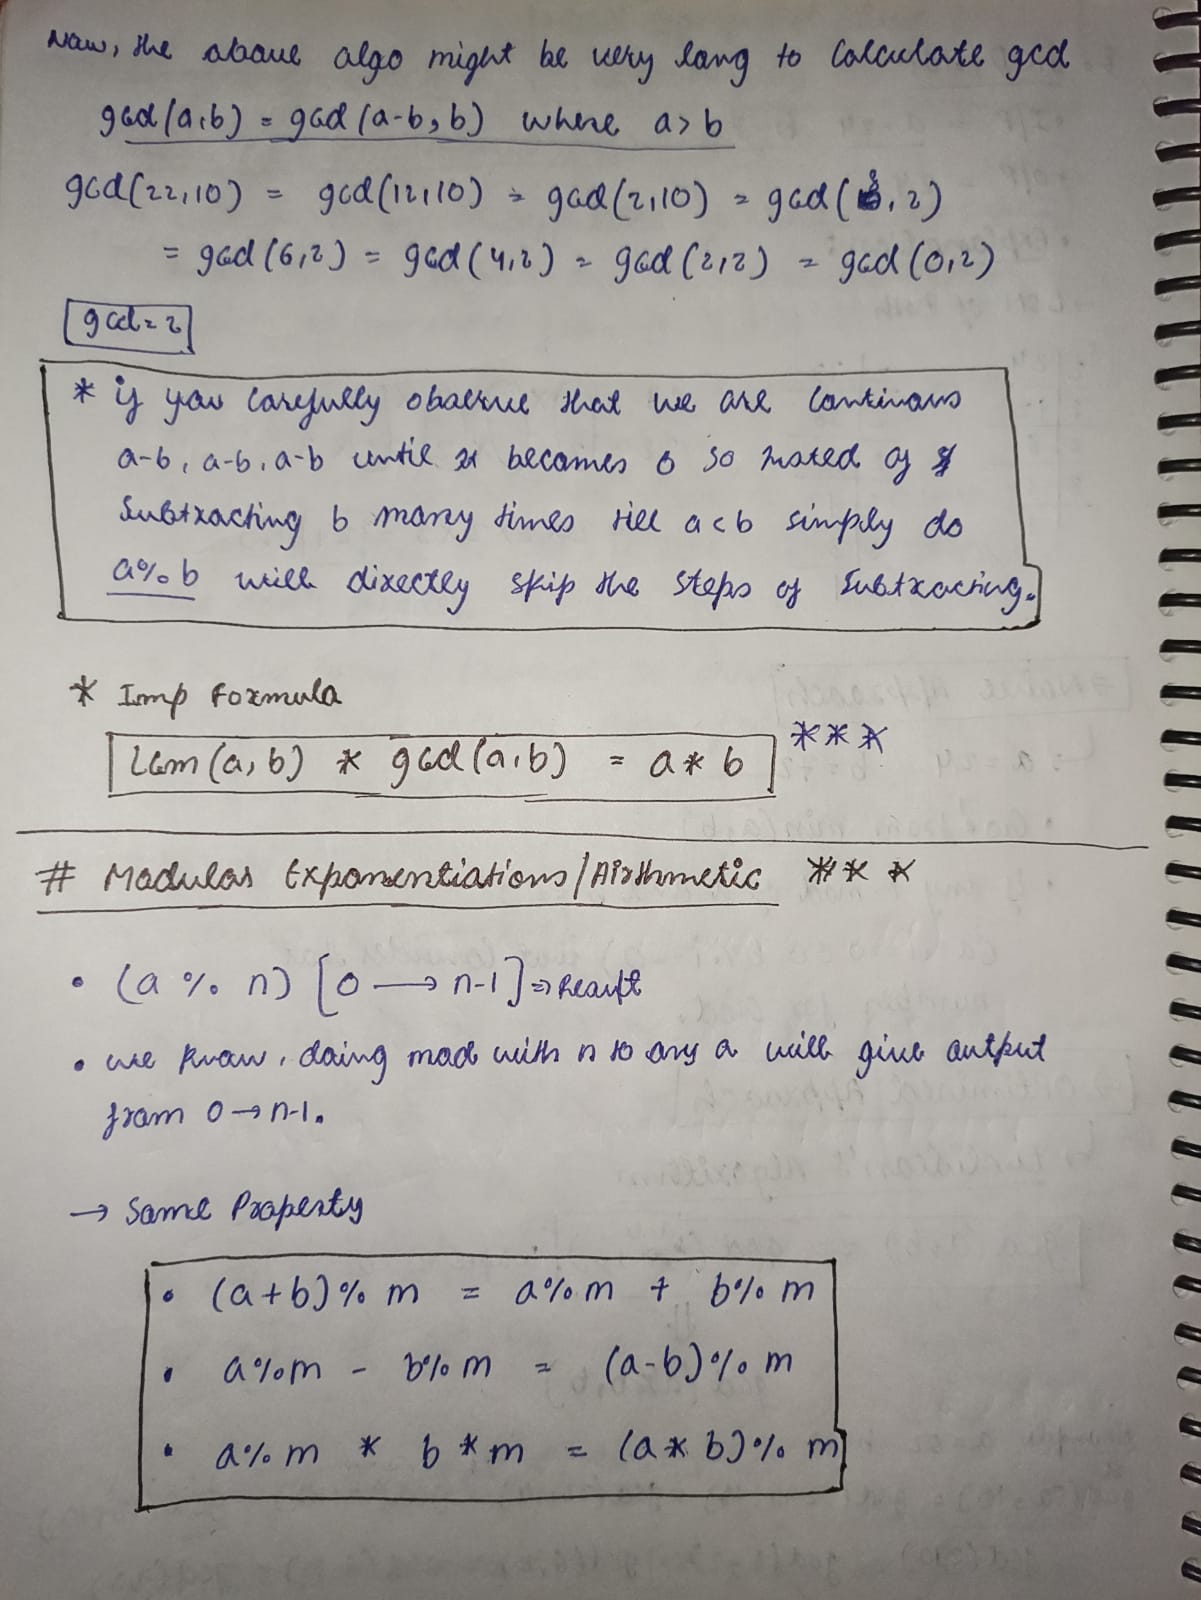 Now, the above algo might be very long to calculate gcd
gcd(a,b) = gcd(a-b, b) where a>b
gcd(22,10) = gcd(12,10) = gcd(2,10) = gcd(8,2)
= gcd(6,2) = gcd(4,2) = gcd(2,2) = gcd(0,2)
gcd=2
* if you carefully observe that we are continous
a-b, a-b, a-b until it becomes 0 so insted of
subtracting b many times till a<b simply do
a%b will directly skip the steps of subtracting.
* Imp Formula
lcm(a,b) * gcd(a,b) = a*b ***
# Modular Exponentiations/Airthmetic ***
• (a % n) [0 → n-1] ⇒ Result
• we know, doing mod with n to any a will give output
from 0 → n-1.
→ Some Property
• (a+b)% m = a%m + b%m
• a%m - b%m = (a-b)%m
• a%m * b*m = (a*b)%m